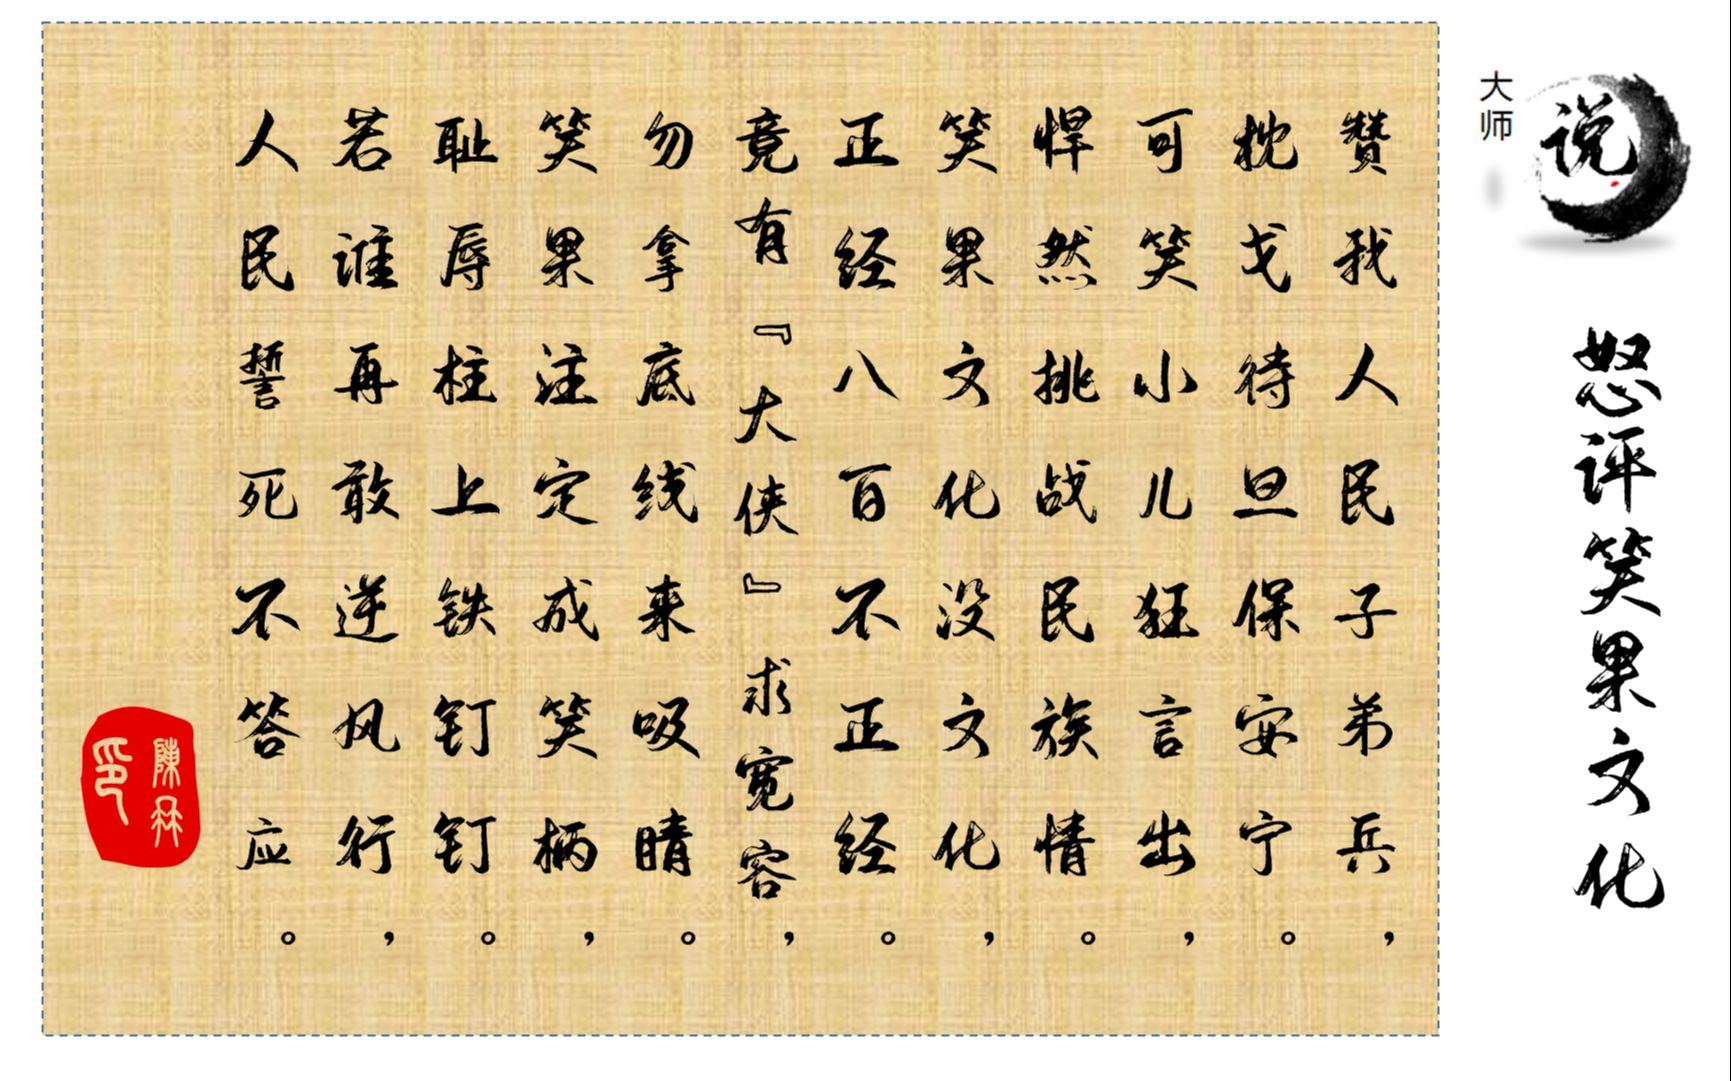 大师
说
怒评笑果文化
赞我人民子弟兵，
枕戈待旦保安宁。
可笑小儿狂言出，
悍然挑战民族情。
笑果文化没文化，
正经八百不正经。
竟有『大侠』求宽容，
勿拿底线来吸睛。
笑果注定成笑柄，
耻辱柱上铁钉钉。
若谁再敢逆风行，
人民誓死不答应。